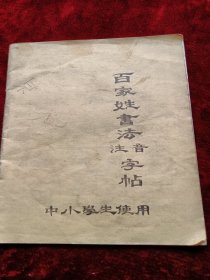 百家姓書法
注音
字帖
中小學生使用